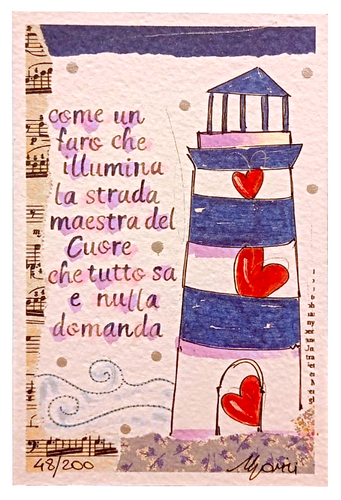 come un
faro che
illumina
la strada
maestra del
Cuore
che tutto sa
e nulla
domanda
48/200